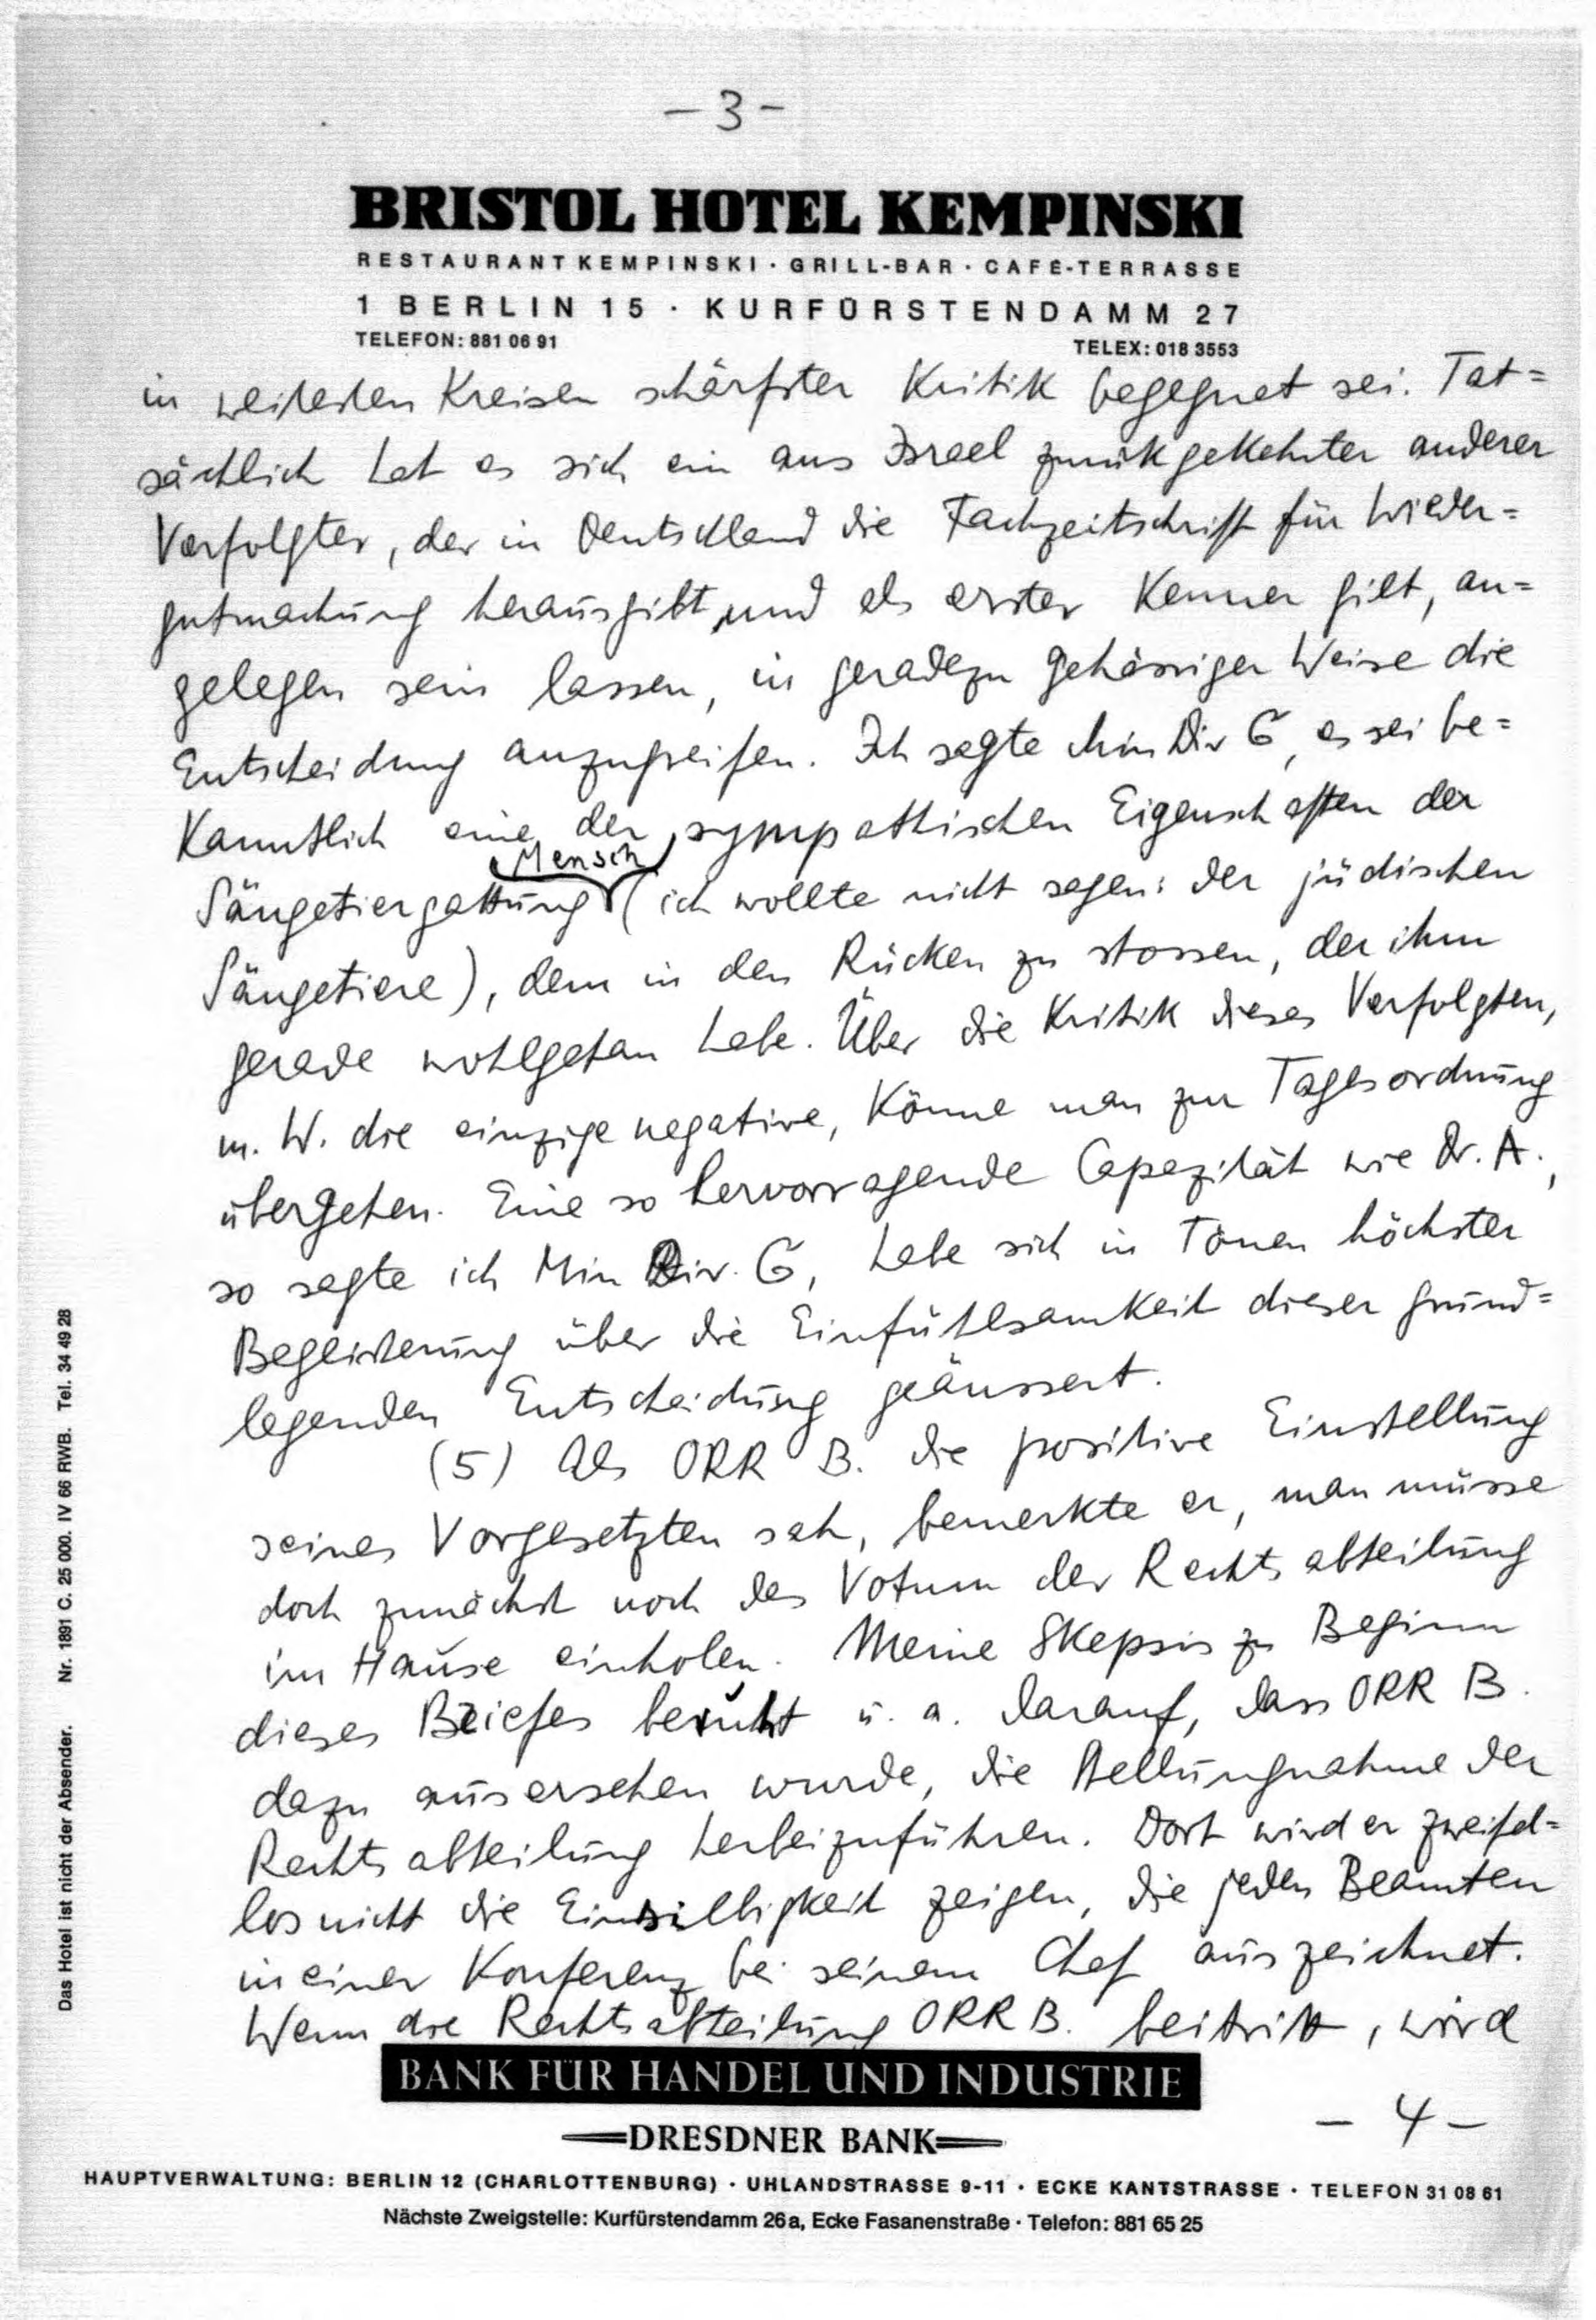 -3-
BRISTOL HOTEL KEMPINSKI
RESTAURANT KEMPINSKI · GRILL-BAR · CAFÉ-TERRASSE
1 BERLIN 15 · KURFÜRSTENDAMM 27
TELEFON: 881 06 91
TELEX: 018 3553
in weitesten Kreisen schärfster Kritik begegnet sei. Tat=
sächlich hat es sich ein aus Israel zurückgekehrter anderer
Verfolgter, der in Deutschland die Fachzeitschrift für Wieder=
gutmachung herausgibt, und als erster Kenner gilt, an=
gelegen sein lassen, in geradezu gehässiger Weise die
Entscheidung anzugreifen. Ich sagte Min Dir G, es sei be=
kanntlich eine der sympathischen Eigenschaften der
Mensch
Säugetiergattung (ich wollte nicht sagen: der jüdischen
Säugetiere), dem in den Rücken zu stossen, der ihm
gerade wohlgetan habe. Über die Kritik dieses Verfolgten,
m. W. die einzige negative, könne man zur Tagesordnung
übergehen. Eine so hervorragende Capazität wie Dr. A.,
so sagte ich Min Dir. G, habe sich in Tönen höchster
Begeisterung über die Einfühlsamkeit dieser grund=
legenden Entscheidung geäussert.
(5) Als ORR B. die positive Einstellung
seines Vorgesetzten sah, bemerkte er, man müsse
doch zunächst noch das Votum der Rechtsabteilung
im Hause einholen. Meine Skepsis zu Beginn
dieses Briefes beruht u. a. darauf, dass ORR B.
dazu ausersehen wurde, die Stellungnahme der
Rechtsabteilung herbeizuführen. Dort wird er zweifel=
los nicht die Einsilbigkeit zeigen, die jeden Beamten
in einer Konferenz bei seinem Chef auszeichnet.
Wenn die Rechtsabteilung ORR B. beitritt, wird
BANK FÜR HANDEL UND INDUSTRIE
- 4 -
DRESDNER BANK
HAUPTVERWALTUNG: BERLIN 12 (CHARLOTTENBURG) · UHLANDSTRASSE 9-11 · ECKE KANTSTRASSE · TELEFON 31 08 61
Nächste Zweigstelle: Kurfürstendamm 26a, Ecke Fasanenstraße · Telefon: 881 65 25
Das Hotel ist nicht der Absender. Nr. 1891 C. 25 000. IV 66 RWB. Tel. 34 49 28